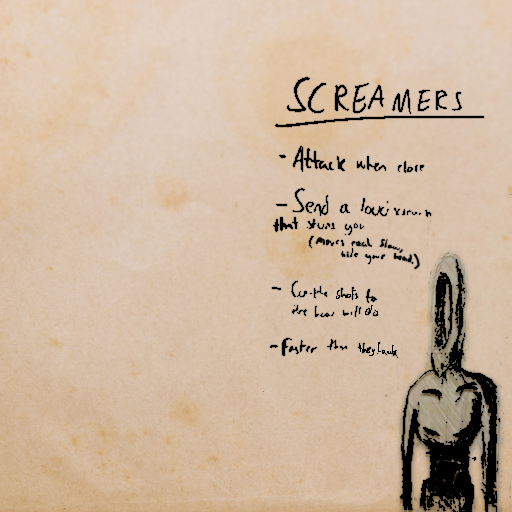 SCREAMERS
- Attack when close
- Send a loud scream
that stuns you
(moves each slow,
hide your head.)
- shots to
the head will do
- Faster than they look